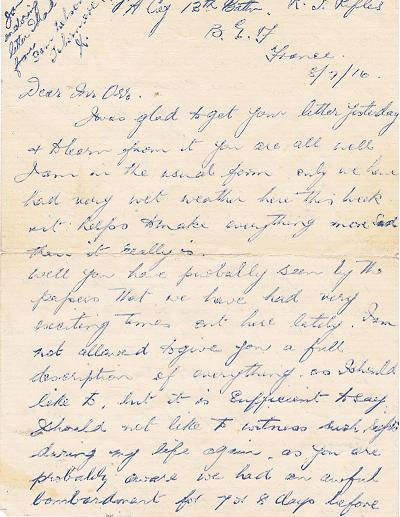 enclosing
letter
from
A Coy 12th Battn. R. I. Rifles
B. E. F
France.
8/7/16.
Dear Mr Orr.
I was glad to get your letter yesterday
& to learn from it you are all well
I am in the usual form only we have
had very wet weather here this week
& it helps to make everything more sad
than it really is.
Well you have probably seen by the
papers that we have had very
exciting times out here lately. I am
not allowed to give you a full
description of everything, as I should
like to, but it is sufficient to say
I should not like to witness such sights
during my life again. as you are
probably aware we had an awful
bombardment for 7 or 8 days before